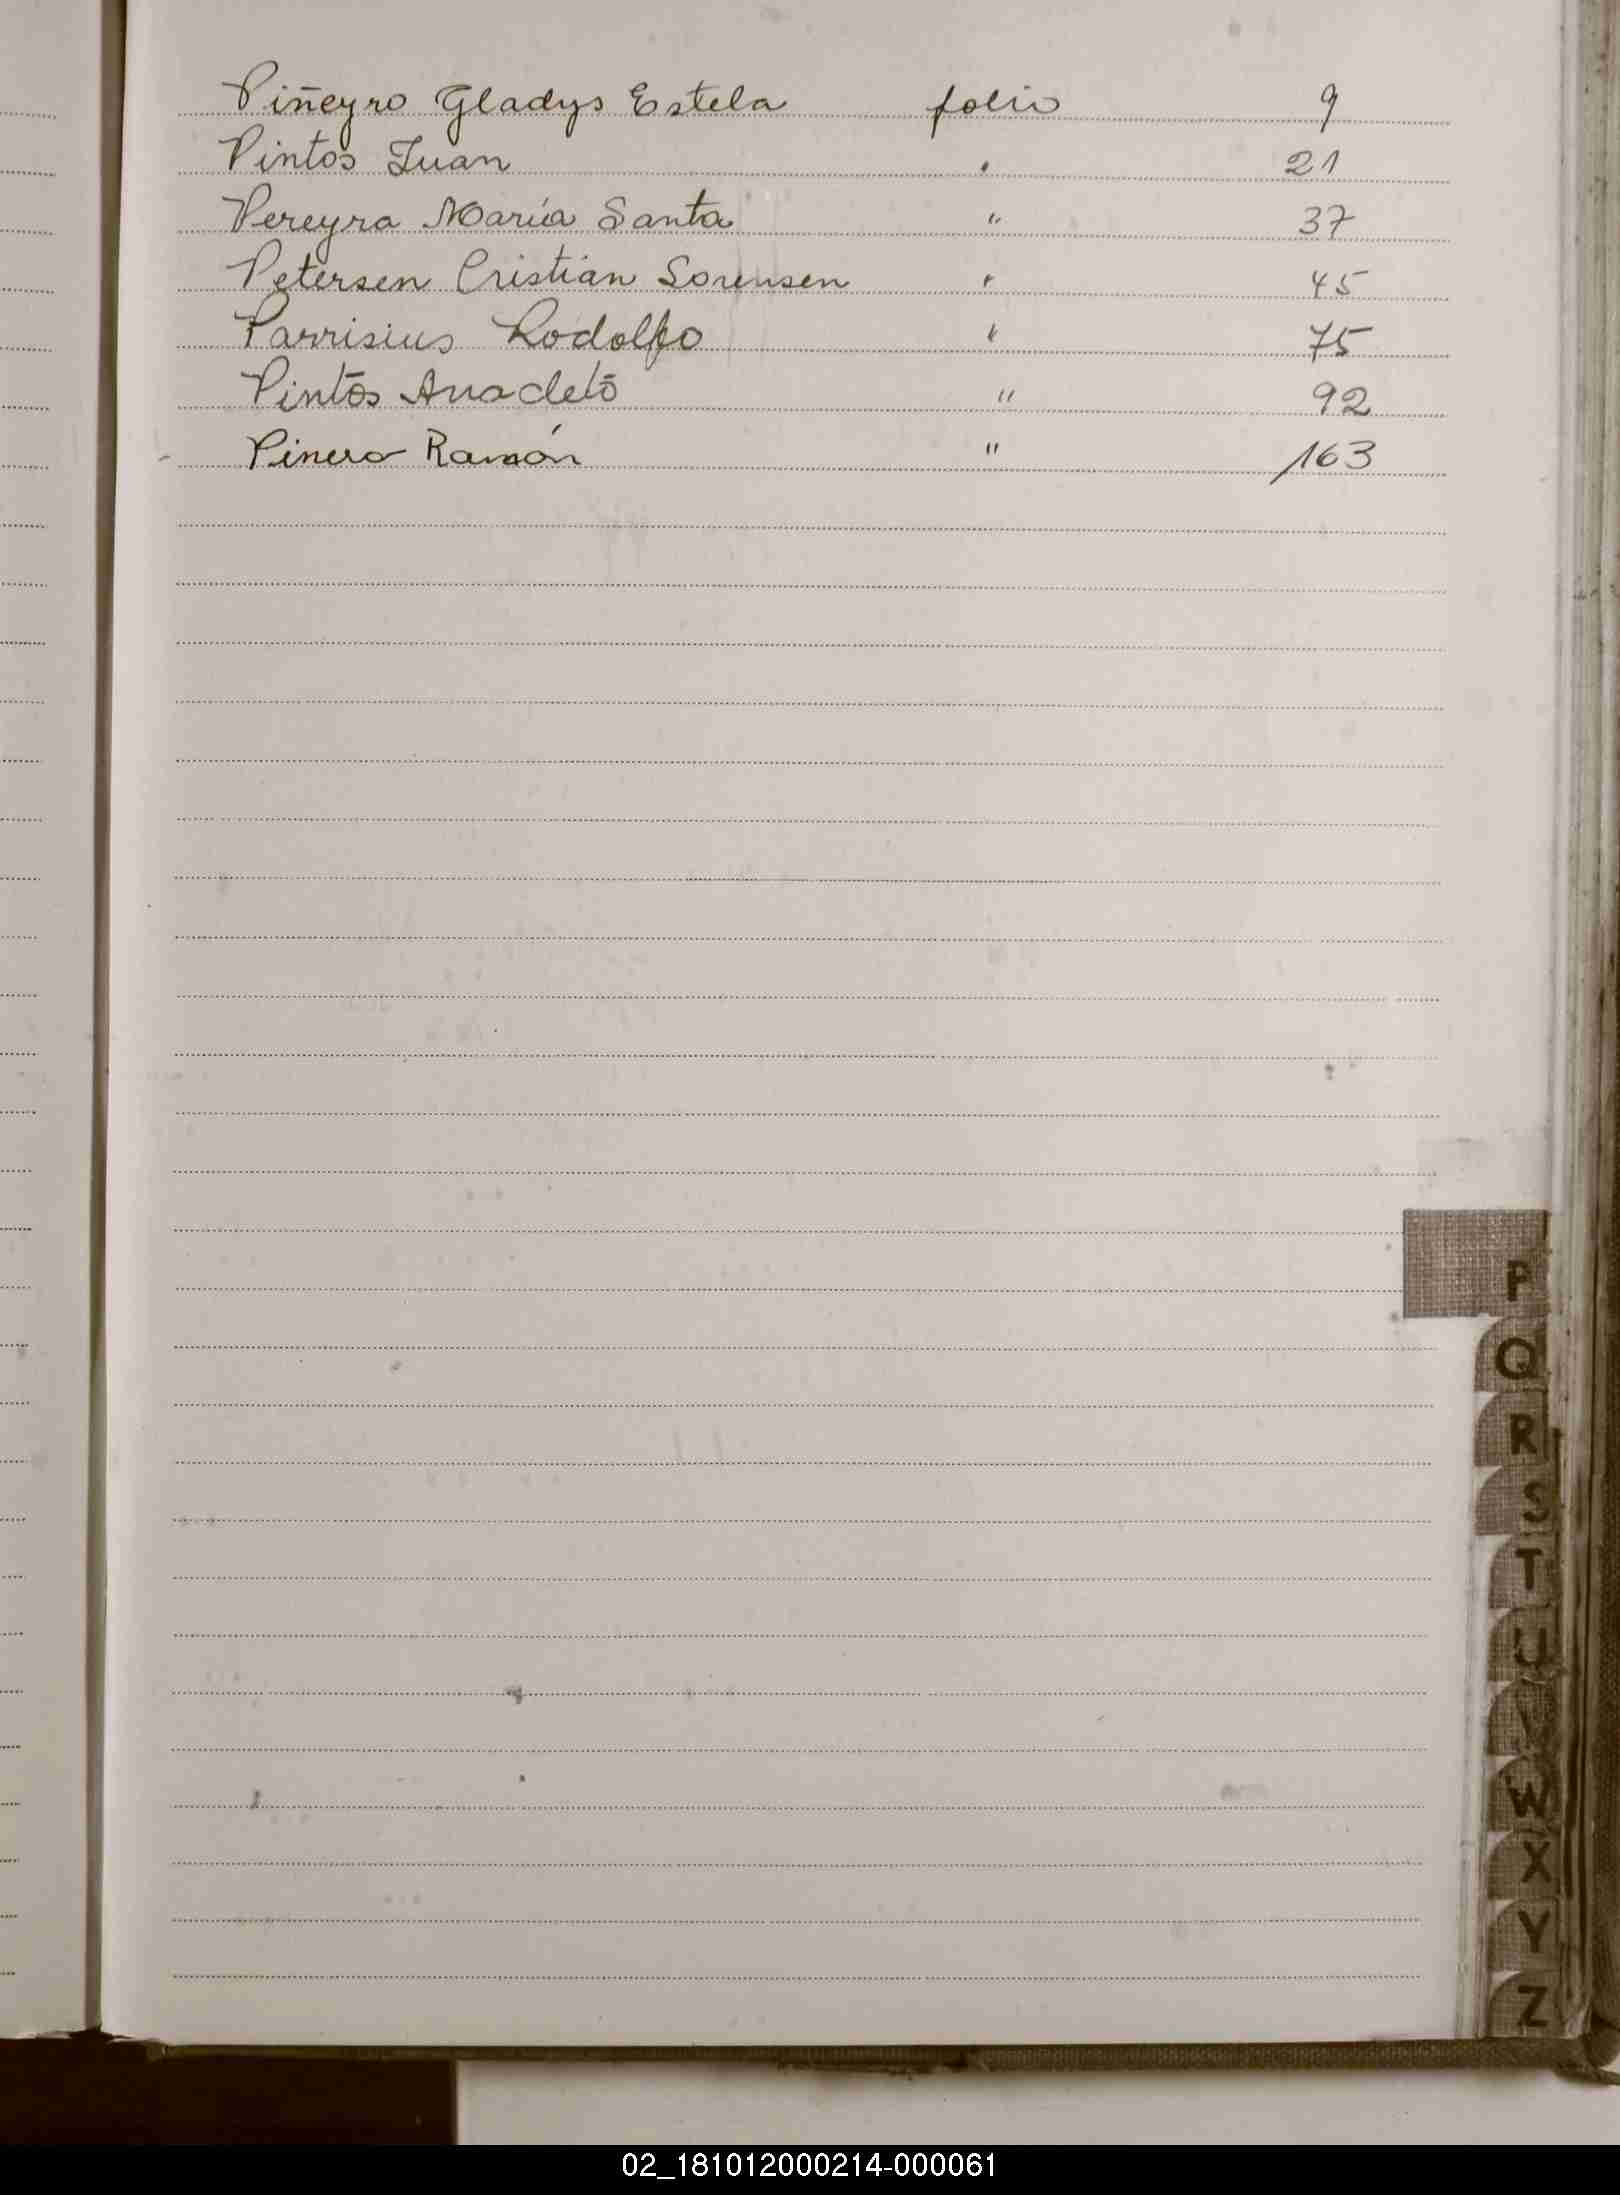 Piñeyro Gladys Estela folio 9
Pintos Juan " 21
Pereyra María Santa " 37
Petersen Cristian Sorensen " 45
Parrisius Rodolfo " 75
Pintos Anacleto " 92
Pinero Ramón " 163
P
Q
R
S
T
U
V
W
X
Y
Z
02_181012000214-000061